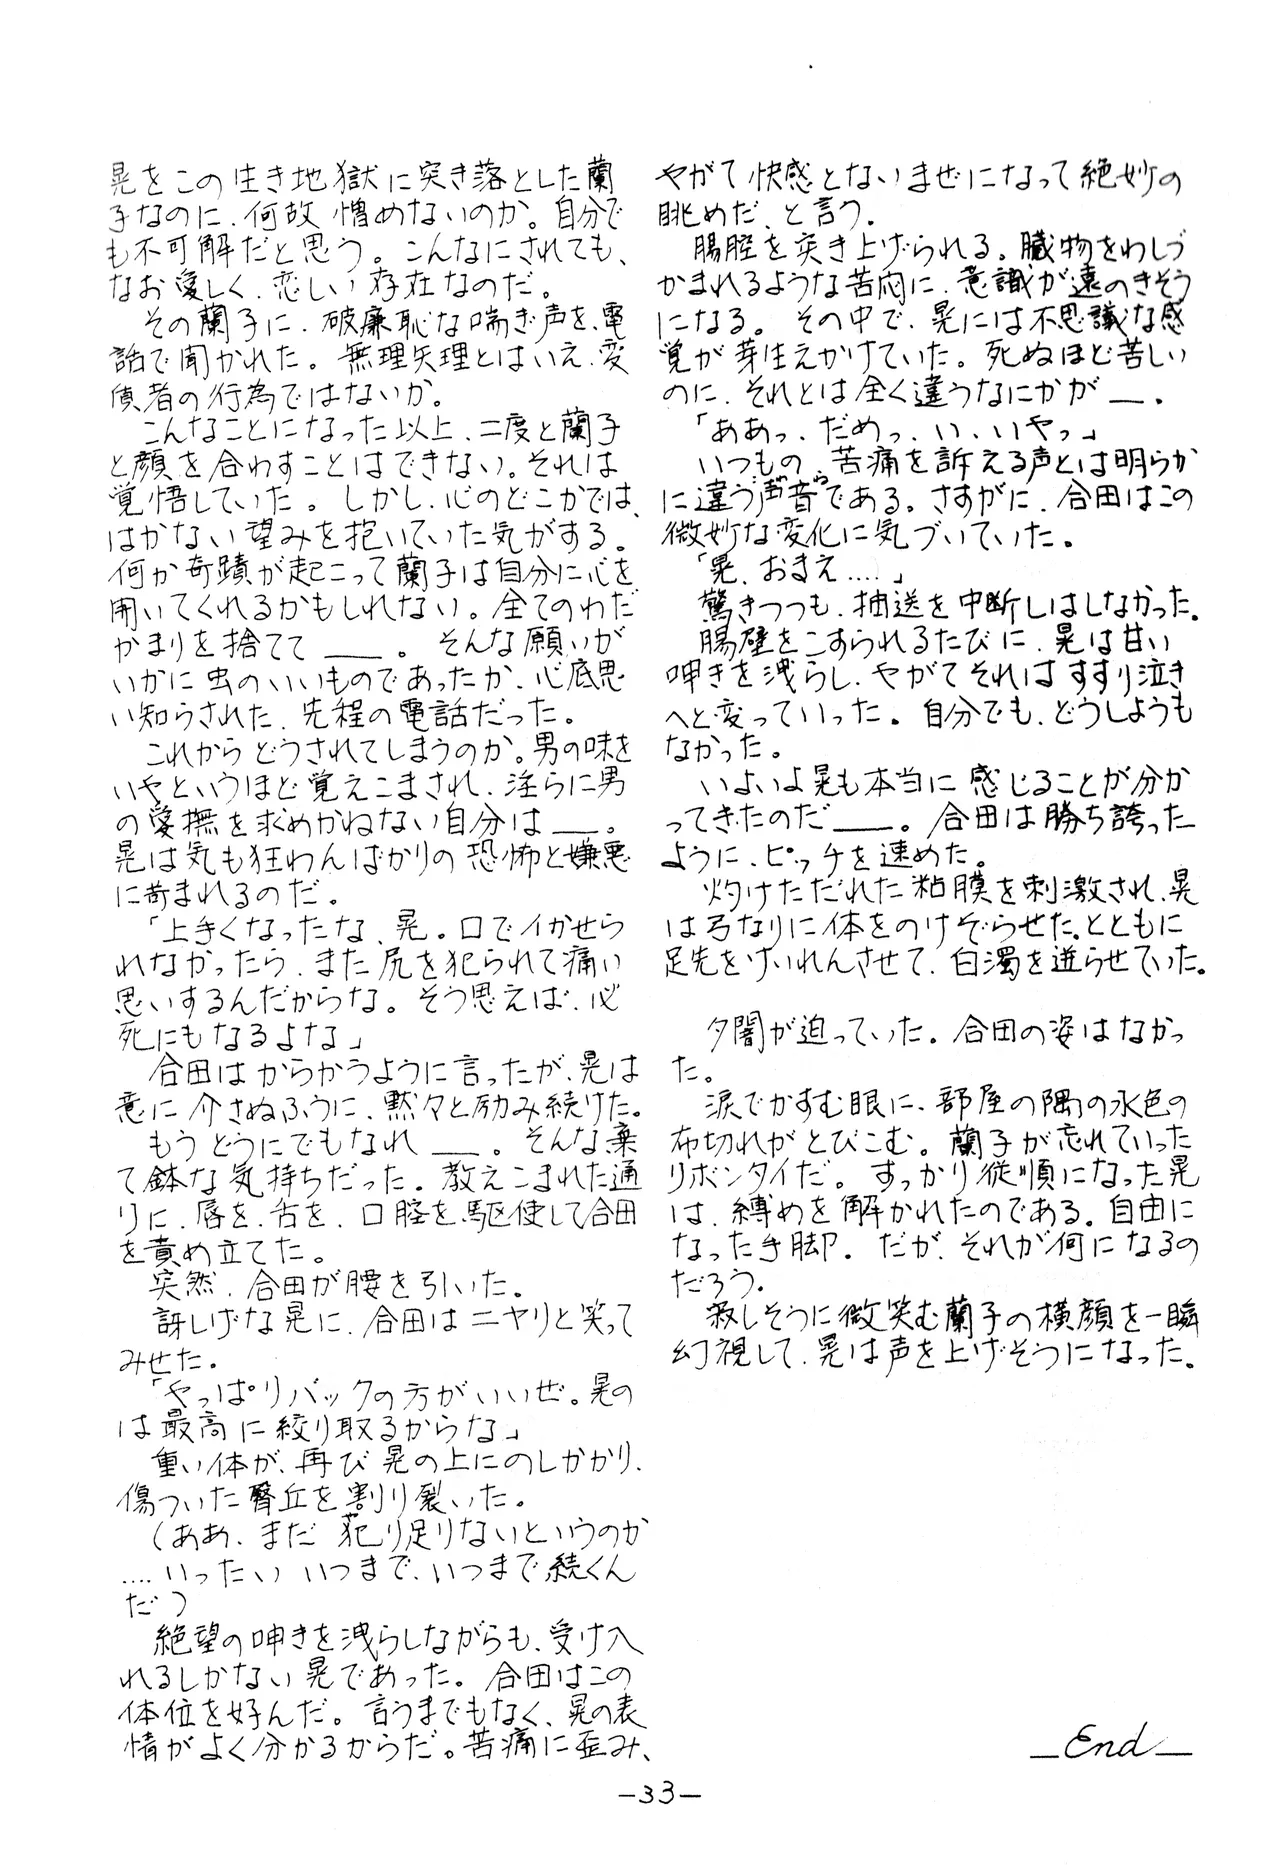 晃をこの生き地獄に突き落とした蘭
子なのに、何故憎めないのか。自分で
も不可解だと思う。こんなにされても、
なお愛しく、恋しい存在なのだ。
その蘭子に、破廉恥な喘ぎ声を、電
話で聞かれた。無理矢理とはいえ、変
質者の行為ではないか。
こんなことになった以上、二度と蘭子
と顔を合わすことはできない。それは
覚悟していた。しかし、心のどこかでは、
はかない望みを抱いていた気がする。
何か奇蹟が起こって蘭子は自分に心を
開いてくれるかもしれない。全てのわだ
かまりを捨てて――。そんな願いが
いかに虫のいいものであったか、心底思
い知らされた、先程の電話だった。
これからどうされてしまうのか。男の味を
いやというほど覚えこまされ、淫らに男
の愛撫を求めかねない自分は――。
晃は気も狂わんばかりの恐怖と嫌悪
に苛まれるのだ。
「上手くなったな、晃。口でイかせら
れなかったら、また尻を犯られて痛い
思いするんだからな。そう思えば、必
死にもなるよな」
合田はからかうように言ったが、晃は
意に介さぬふうに、黙々と励み続けた。
もうどうにでもなれ――。そんな棄
て鉢な気持ちだった。教えこまれた通
りに、唇を、舌を、口腔を、駆使して合田
を責め立てた。
突然、合田が腰を引いた。
訝しげな晃に、合田はニヤリと笑って
みせた。
「やっぱりバックの方がいいぜ。晃の
は最高に絞り取るからな」
重い体が、再び晃の上にのしかかり、
傷ついた臀丘を割り裂いた。
（ああ、まだ犯り足りないというのか
‥‥いったいいつまで、いつまで続くん
だ）
絶望の呻きを洩らしながらも、受け入
れるしかない晃であった。合田はこの
体位を好んだ。言うまでもなく、晃の表
情がよく分かるからだ。苦痛に歪み、
やがて快感とないまぜになって絶妙の
眺めだ、と言う。
腸腔を突き上げられる。臓物をわしづ
かまれるような苦悶に、意識が遠のきそう
になる。その中で、晃には不思議な感
覚が芽生えかけていた。死ぬほど苦しい
のに、それとは全く違うなにかが――。
「ああっ、だめっ、い、いやっ」
いつもの、苦痛を訴える声とは明らか
に違う声音である。さすがに、合田はこの
微妙な変化に気づいていた。
「晃、おまえ‥‥」
驚きつつも、抽送を中断しはしなかった。
腸壁をこすられるたびに、晃は甘い
呻きを洩らし、やがてそれはすすり泣き
へと変っていった。自分でも、どうしようも
なかった。
いよいよ晃も本当に感じることが分か
ってきたのだ――。合田は勝ち誇った
ように、ピッチを速めた。
灼けただれた粘膜を刺激され、晃
は弓なりに体をのけぞらせた。とともに
足先をけいれんさせて、白濁を迸らせていた。
夕闇が迫っていた。合田の姿はなかっ
た。
涙でかすむ眼に、部屋の隅の水色の
布切れがとびこむ。蘭子が忘れていった
リボンタイだ。すっかり従順になった晃
は、縛めを解かれたのである。自由に
なった手脚。だが、それが何になるの
だろう。
寂しそうに微笑む蘭子の横顔を一瞬
幻視して、晃は声を上げそうになった。
―End―
－33－